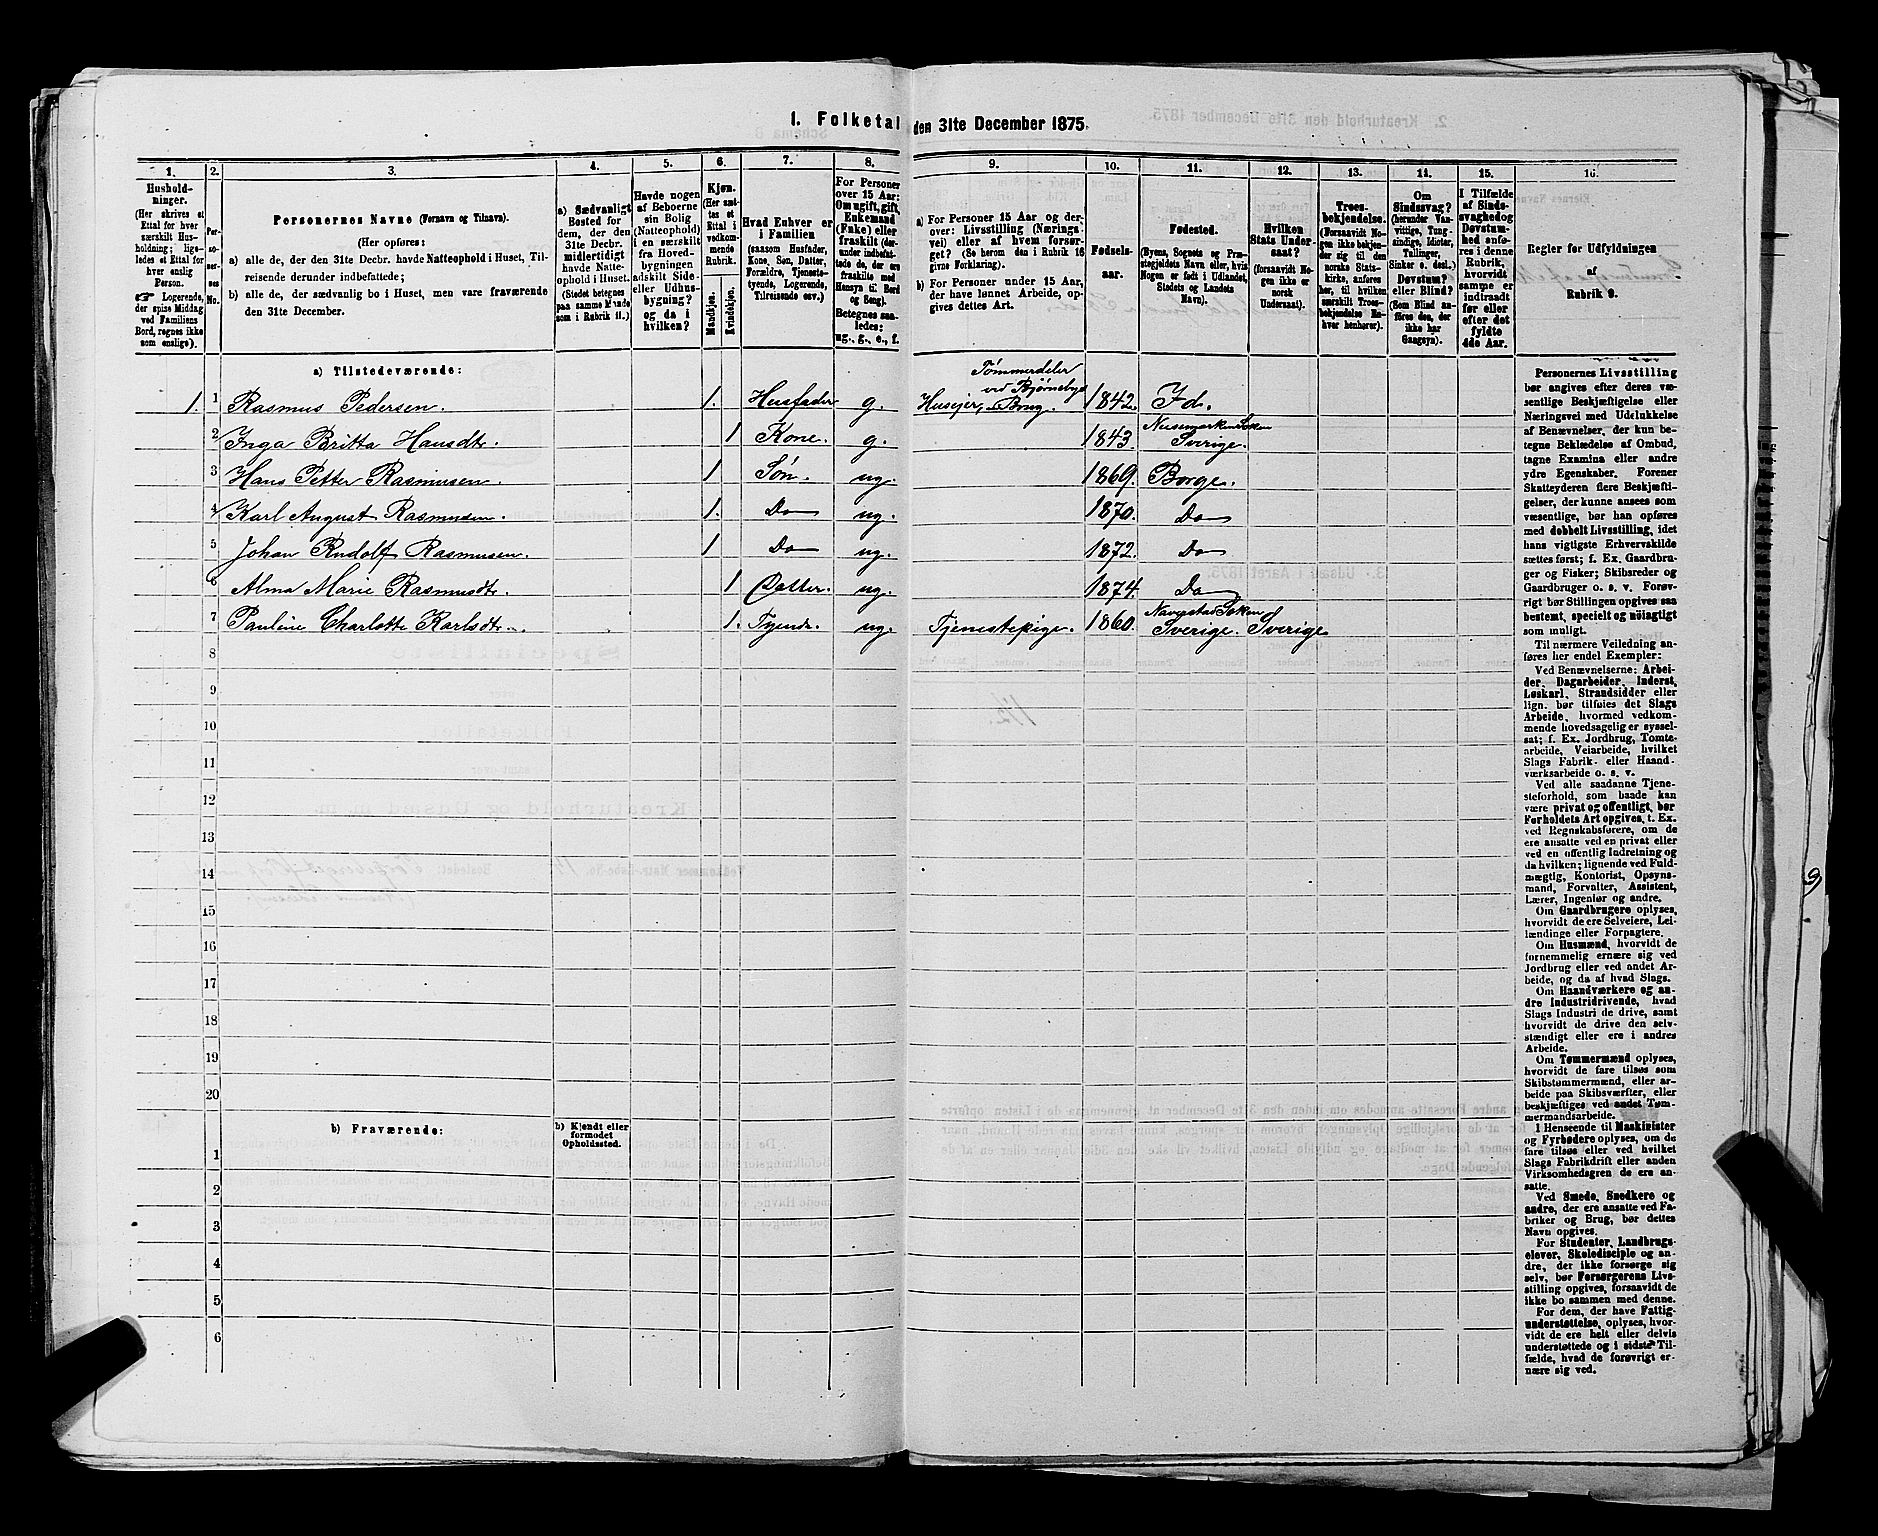 1. Folketal den 31te December 1875.
1.
2.
3.
4.
5.
6.
7.
8.
9.
10.
11.
12.
13.
14.
15.
16.
Hushold-
ninger.
(Her skrives et
Ettal for hver
særskilt Hus-
holdning; lige-
ledes et Ettal for
hver enslig
Person.
☞ Logerende,
der spise Middag
ved Familiens
Bord, regnes ikke
som enslige).
Per-
so-
ner-
nes
No.
Personernes Navne (Fornavn og Tilnavn).
(Her opføres:
a) alle de, der den 31te Decbr. havde Natteophold i Huset, Til-
reisende derunder indbefattede;
b) alle de, der sædvanlig bo i Huset, men vare fraværende
den 31te December.
a) Sædvanligt
Bosted for
dem, der den
31te Decbr.
midlertidigt
havde Natte-
ophold i Huset.
(Stedet betegnes
paa samme Maade
som i Rubrik 11.)
Havde nogen
af Beboerne
sin Bolig
(Natteophold)
i en særskilt
fra Hoved-
bygningen
adskilt Side-
eller Udhus-
bygning?
og da i
hvilken?
Kjøn.
(Her sæt-
tes et
Ettal i
vedkom-
mende
Rubrik.
Mandkjøn.
Kvindekjøn.
Hvad Enhver er
i Familien
(saasom Husfader,
Kone, Søn, Datter,
Forældre, Tjeneste-
tyende, Logerende,
Tilreisende osv.)
For Personer
over 15 Aar:
Om ugift, gift,
Enkemand
(Enke) eller
fraskilt (der-
under indbefat-
tede de, der ere
fraskilte med
Hensyn til Bord
og Seng).
Betegnes saa-
ledes:
ug., g., e., f.
a) For Personer 15 Aar og der-
over: Livsstilling (Nærings-
vei) eller af hvem forsør-
get? (Se herom den i Rubrik 16
givne Forklaring).
b) For Personer under 15 Aar,
der have lønnet Arbeide, op-
gives dettes Art.
Fødsels-
aar.
Fødested.
(Byens, Sognets og Præ-
stegjeldets Navn eller, hvis
Nogen er født i Udlandet,
Stedets og Landets
Navn).
Hvilken
Stats Under-
saat?
(forsaavidt No-
gen ikke er
norsk
Undersaat).
Troes-
bekjendelse.
(Forsaavidt No-
gen ikke bekjen-
der sig til den
norske Stats-
kirke, anføres
her, til hvilken
særskilt Troes-
bekjendelse En-
hver henhører).
Om
Sindssvag?
(herunder Van-
vittige, Tung-
sindige, Idioter,
Tullinger,
Sinker o. desl.)
Døvstum?
eller Blind?
(Som Blind an-
føres den, der
ikke har
Gangsyn).
I Tilfælde
af Sinds-
svaghed og
Døvstum-
hed anfø-
res i denne
Rubrik,
hvorvidt
samme er
indtraadt
før eller
efter det
fyldte
4de Aar.
Regler for Udfyldningen
af
Rubrik 9.
a) Tilstedeværende:
1. 1 Rasmus Pedersen. 1. Husfader g. Husejer, Tømmerdeler ved Bjørnebye Brug. 1842. Id.
2 Inga Britta Hansdtr. 1 Kone. g. 1843. Sverige.
3 Hans Petter Rasmusen. 1 Søn. ug. 1869. Borge.
4 Karl August Rasmusen. 1. Do ug. 1870. Do
5 Johan Rudolf Rasmusen. 1 Do ug. 1872. Do
6 Alma Marie Rasmusdtr. 1 Datter. ug. 1874. Do
7 Pauline Charlotte Karlsdtr. 1. Tyende. ug. Tjenestepige. 1860. Naverstad Soken Sverige. Sverige
8
9
10
11
12
13
14
15
16
17
18
19
20
b) Fraværende:
b) Kjendt eller
formodet
Opholdssted.
1
2
3
4
5
6
Personernes Livsstilling
bør angives efter deres væ-
sentlige Beskjæftigelse eller
Næringsvei med Udelukkelse
af Benævnelser, der kun be-
tegne Beklædelse af Ombud,
tagne Examina eller andre
ydre Egenskaber. Forener
Skatteyderen flere Beskjæfti-
gelser, der kunne ansees som
væsentlige, bør han opføres
med dobbelt Livsstilling, idet
hans vigtigste Erhvervskilde
sættes først; f. Ex. Gaardbru-
ger og Fisker; Skibsreder og
Gaardbruger o. s. v. Forøv-
rigt bør Stillingen opgives saa
bestemt, specielt og nøiagtigt
som muligt.
Til nærmere Veiledning an-
føres her endel Exempler:
Ved Benævnelserne: Arbei-
der, Dagarbeider, Inderst,
Løskarl, Strandsidder eller
lign. bør tilføies det Slags
Arbeide, hvormed vedkom-
mende hovedsagelig er syssel-
sat; f. Ex. Jordbrug, Tomte-
arbeide, Veiarbeide, hvilket
Slags Fabrik- eller Haand-
værksarbeide o. s. v.
Ved alle saadanne Tjene-
steforhold, som baade kan
være privat og offentligt, bør
Forholdets Art opgives, t. Ex.
ved Regnskabsførere, om de
ere ansatte ved en privat eller
ved en offentlig Indretning og
da hvilken; lignende ved Fuld-
mægtig, Kontorist, Opsyns-
mand, Forvalter, Assistent,
Lærer, Ingeniør og andre.
Om Gaardbrugere oplyses,
hvorvidt de ere Selveiere, Lei-
lændinge eller Forpagtere.
Om Husmænd, hvorvidt de
fornemmelig ernære sig ved
Jordbrug eller ved andet Ar-
beide, og da af hvad Slags.
Om Haandværkere og an-
dre Industridrivende, hvad
Slags Industri de drive, samt
hvorvidt de drive den selv-
stændigt eller ere i andres
Arbeide.
Om Tømmermænd oplyses,
hvorvidt de fare tilsøs som
Skibstømmermænd, eller ar-
beide paa Skibsværfter, eller
beskjæftiges ved andet Tøm-
mermandsarbeide.
I Henseende til Maskinister
og Fyrbødere oplyses, om de
fare tilsøs eller ved hvilket
Slags Fabrikdrift eller anden
Virksomhedsgren de ere an-
satte.
Ved Smede, Snedkere og
andre, der ere ansatte ved Fa-
briker og Brug, bør dettes
Navn opgives.
For Studenter, Landbrugs-
elever, Skoledisciple og an-
dre, der ikke forsørge sig
selv, bør Forsørgerens Livs-
stilling opgives, forsaavidt de
ikke bo sammen med denne.
For dem, der have Fattig-
understøttelse, oplyses, hvor-
vidt de ere helt eller delvis
understøttede og i sidste Til-
fælde, hvad de forøvrigt er-
nære sig ved.